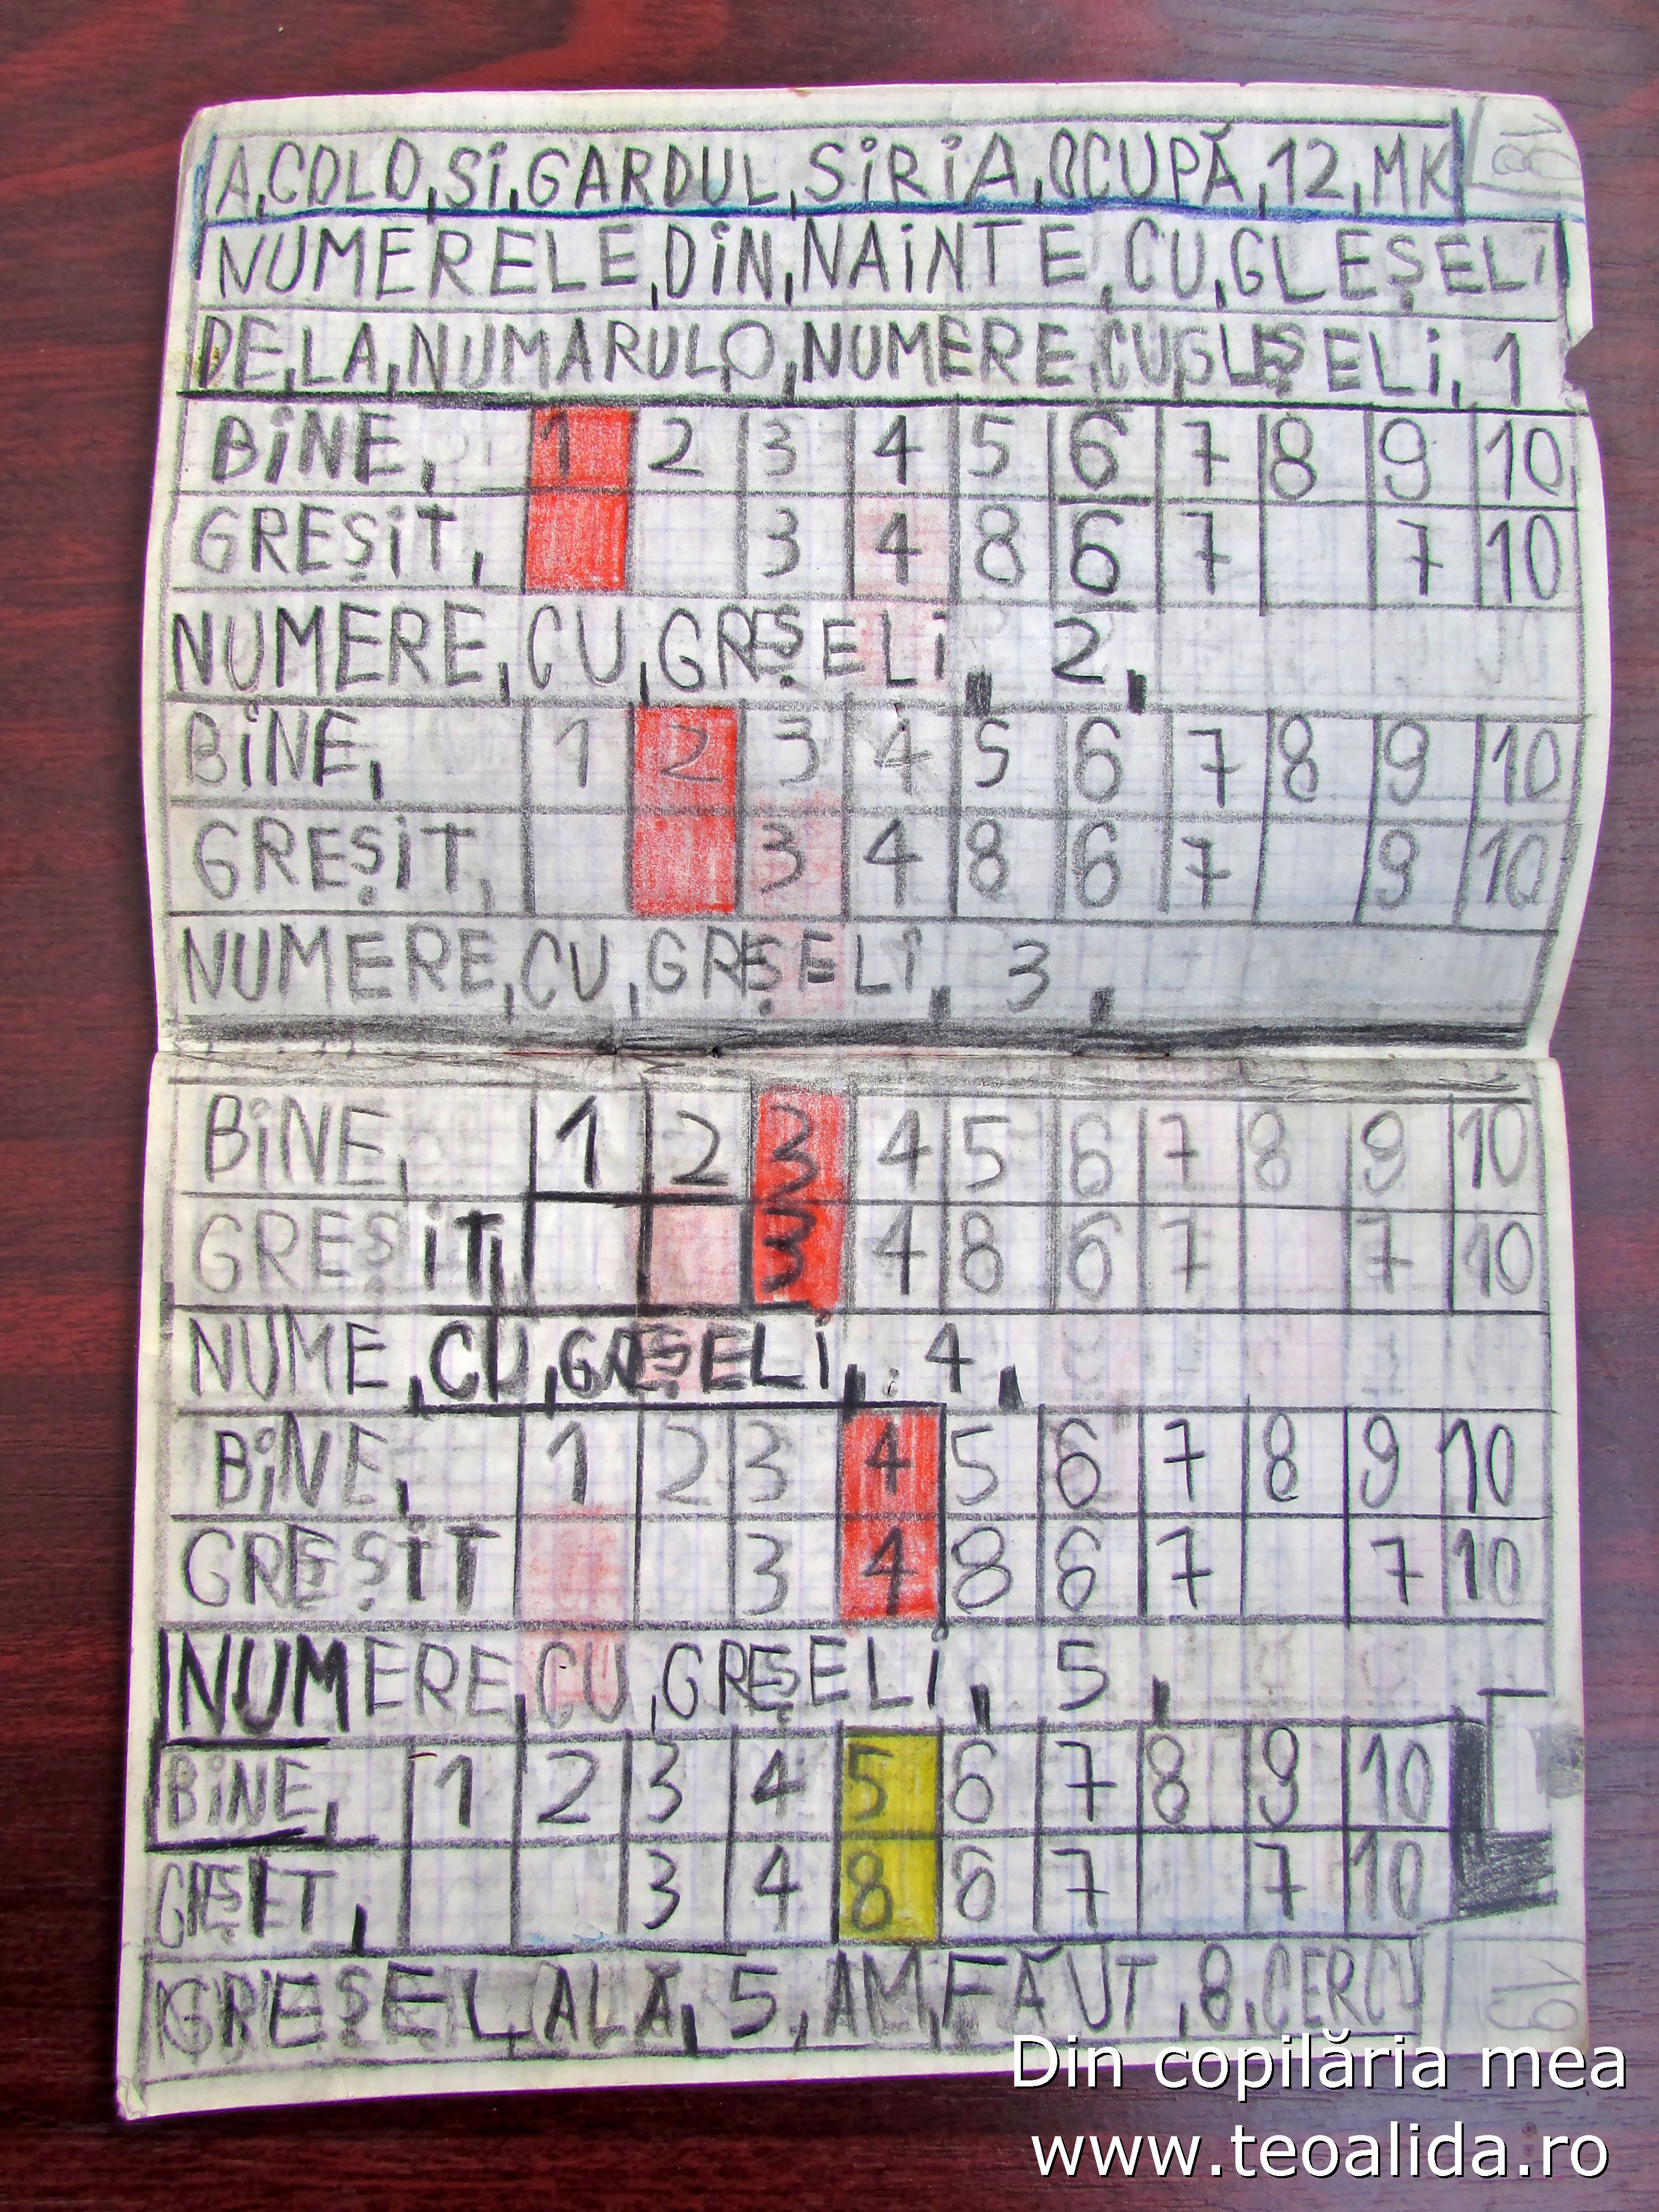 A,COLO,Si,GARDUL,SiRiA,OCUPĂ,12,MK
18
NUMERELE,DiN,NAiNTE,CU,GLEȘELi
DE,LA,NUMARUL,O,NUMERE,CU,GLEȘELi,1
BiNE, 1 2 3 4 5 6 7 8 9 10
GREȘiT, 3 4 8 6 7 7 10
NUMERE,CU,GREȘELi, 2,
BiNE, 1 2 3 4 5 6 7 8 9 10
GREȘiT, 3 4 8 6 7 9 10
NUMERE,CU,GREȘELi, 3,
BiNE, 1 2 3 4 5 6 7 8 9 10
GREȘiT, 3 4 8 6 7 7 10
NUME,CU,GREȘELi, 4,
BiNE, 1 2 3 4 5 6 7 8 9 10
GREȘiT 3 4 8 6 7 7 10
NUMERE,CU,GREȘELi, 5,
BiNE, 1 2 3 4 5 6 7 8 9 10
3 4 8 6 7 7 10
GREȘEL,ALĂ,5,AM,FĂUT,8,CERCU
19
Din copilăria mea
www.teoalida.ro